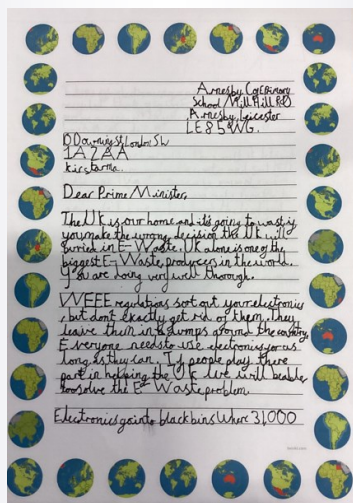 Arnesby CofE Primary
School Mill Hill Rd
Arnesby, Leicester
LE8 5WG.
10 Downing St London SW
1A 2AA
Kir starma.
Dear Prime Minister,
The UK is our home and it's going to wast if
you make the wrong decision the UK will
burried in E-Waste. UK alone is one of the
biggest E-Waste producers in the world.
You are doing very well thorough.
WEEE regulations sort out your electronics
, but dont exactly get rid of them. They
leave them in dumps around the country.
Everyone needs to use electronics for as
long as they can. If people play there
part in helping the UK we will be able
too solve the E-Waste problem.
Electronics go into black bins Where 31,000